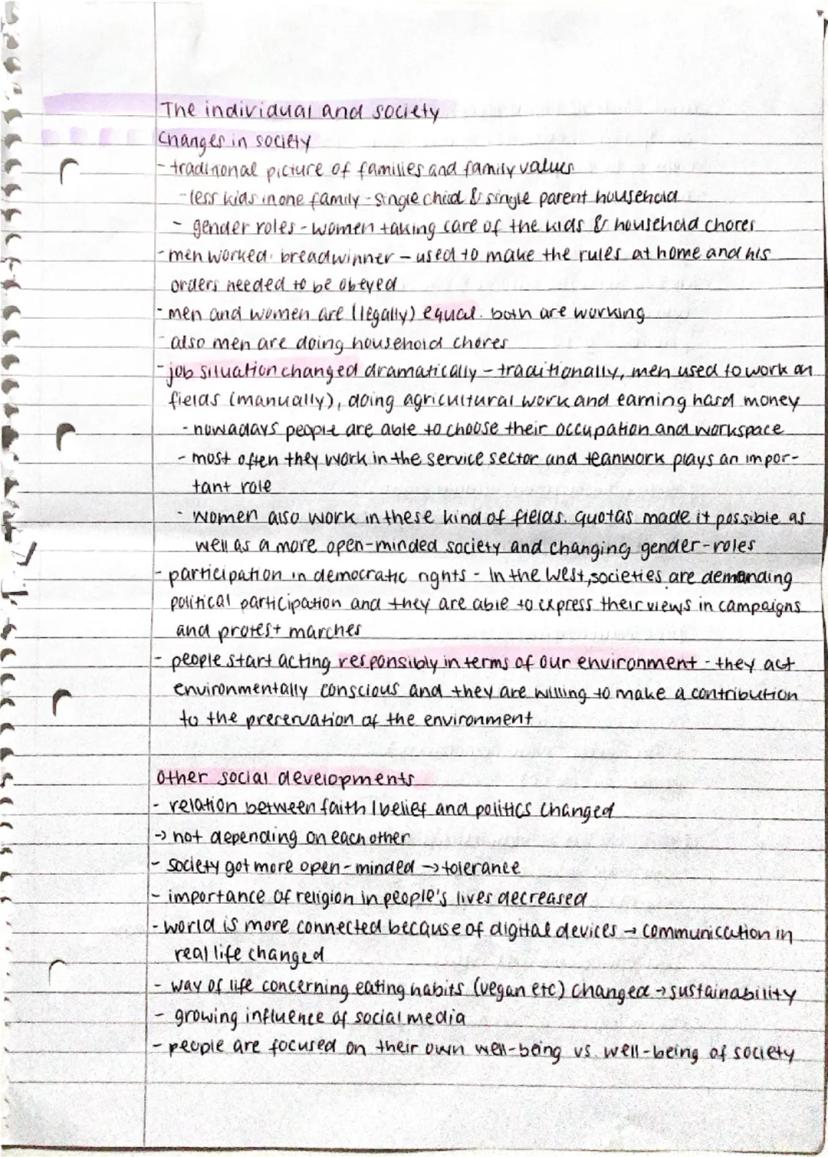 The individual and society
Changes in society
- traditional picture of families and family values
- less kids in one family - single child & single parent household
- gender roles - women taking care of the kids & household chores
- men worked · breadwinner - used to make the rules at home and his
orders needed to be obeyed
- men and women are (legally) equal. both are working
- also men are doing household chores
- job situation changed dramatically - traditionally, men used to work on
fields (manually), doing agricultural work and earning hard money
- nowadays people are able to choose their occupation and workspace
- most often they work in the service sector and teamwork plays an impor-
tant role
- women also work in these kind of fields. Quotas made it possible as
well as a more open-minded society and changing gender-roles
- participation in democratic rights - in the West, societies are demanding
political participation and they are able to express their views in campaigns
and protest marches
- people start acting responsibly in terms of our environment - they act
environmentally conscious and they are willing to make a contribution
to the preservation of the environment
Other social developments
- relation between faith / belief and politics changed
→ not depending on each other
- society got more open-minded → tolerance
- importance of religion in people's lives decreased
- world is more connected because of digital devices → communication in
real life changed
- way of life concerning eating habits (vegan etc) changed → sustainability
- growing influence of social media
- people are focused on their own well-being vs well-being of society